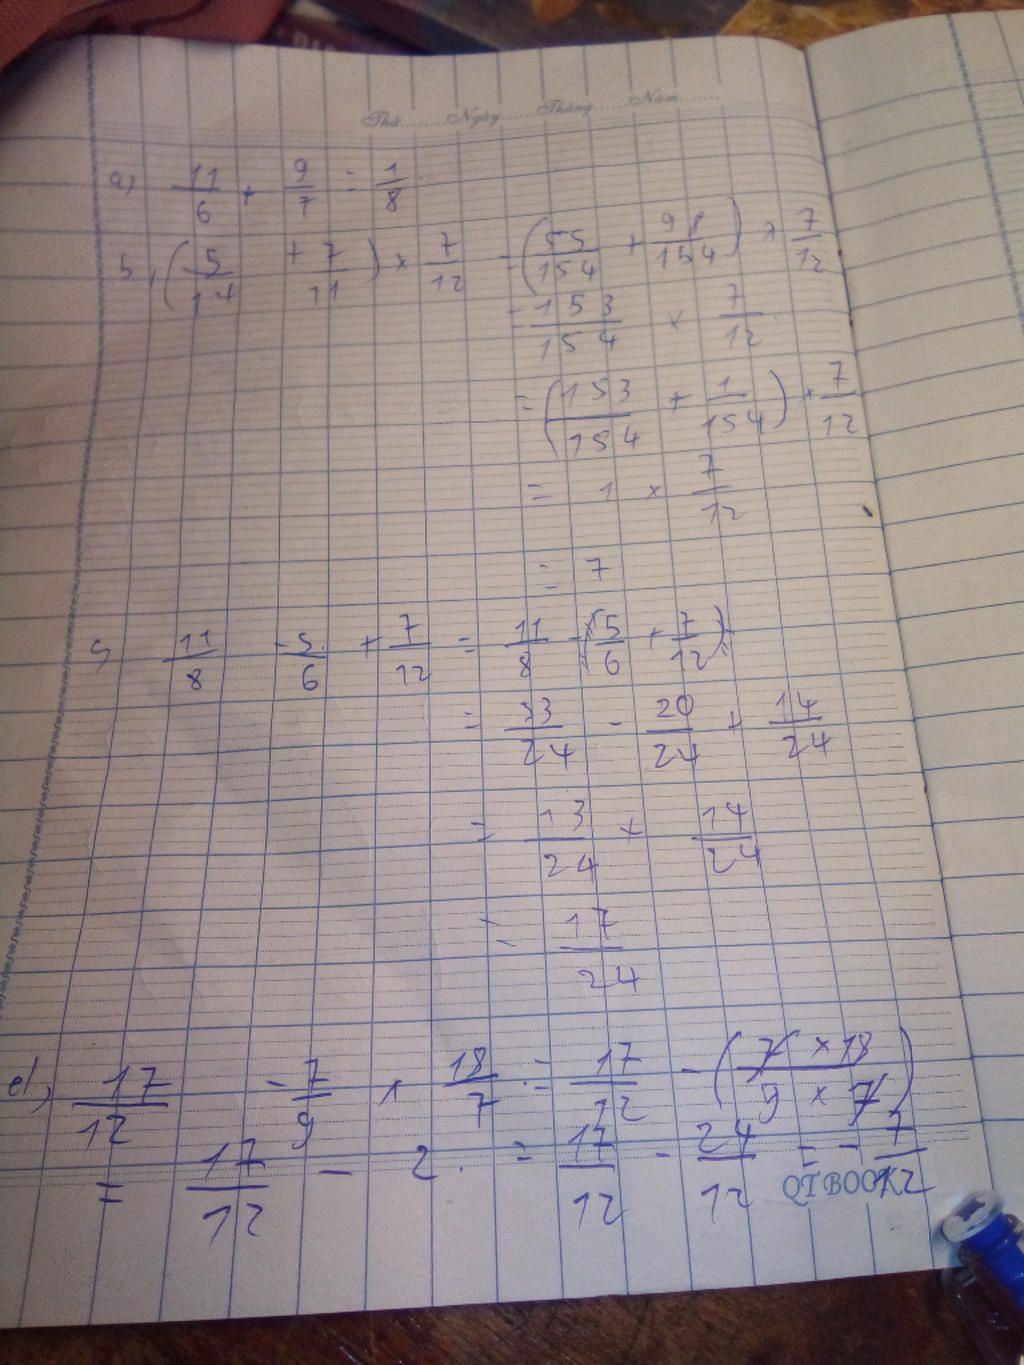 Thứ Ngày Tháng Năm
a) 11/6 + 9/7 = 1/8
b, (5/14 + 7/11) × 7/12 = (55/154 + 98/154) × 7/12
= 153/154 × 7/12
= (153/154 + 1/154) × 7/12
= 1 × 7/12
= 7
c, 11/8 - 5/6 + 7/12 = 11/8 - (5/6 + 7/12)
= 33/24 - 20/24 + 14/24
= 13/24 + 14/24
= 17/24
d), 17/12 - 7/9 × 18/7 = 17/12 - (7 × 18/9 × 7)
= 17/12 - 2 = 17/12 - 24/12 = - 7/12
QTBOOK